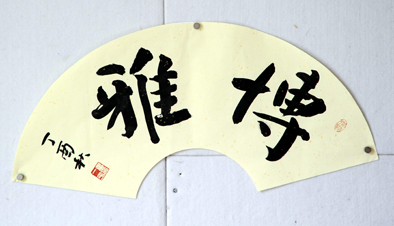 博雅
丁酉秋